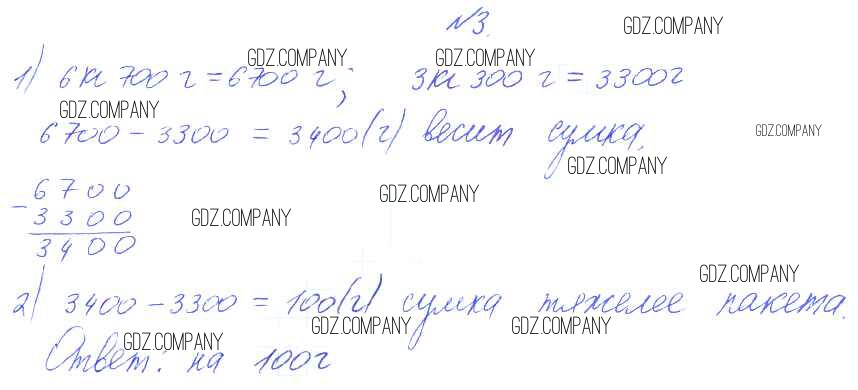 №3.
GDZ.COMPANY
GDZ.COMPANY GDZ.COMPANY
1) 6кг 700 г = 6700 г; 3кг 300 г = 3300г
GDZ.COMPANY
6700 - 3300 = 3400(г) весит сумка.
GDZ.COMPANY
GDZ.COMPANY
GDZ.COMPANY
- 6700
3300
3400
GDZ.COMPANY
GDZ.COMPANY
2) 3400 - 3300 = 100(г) сумка тяжелее пакета.
GDZ.COMPANY GDZ.COMPANY GDZ.COMPANY
Ответ: на 100г